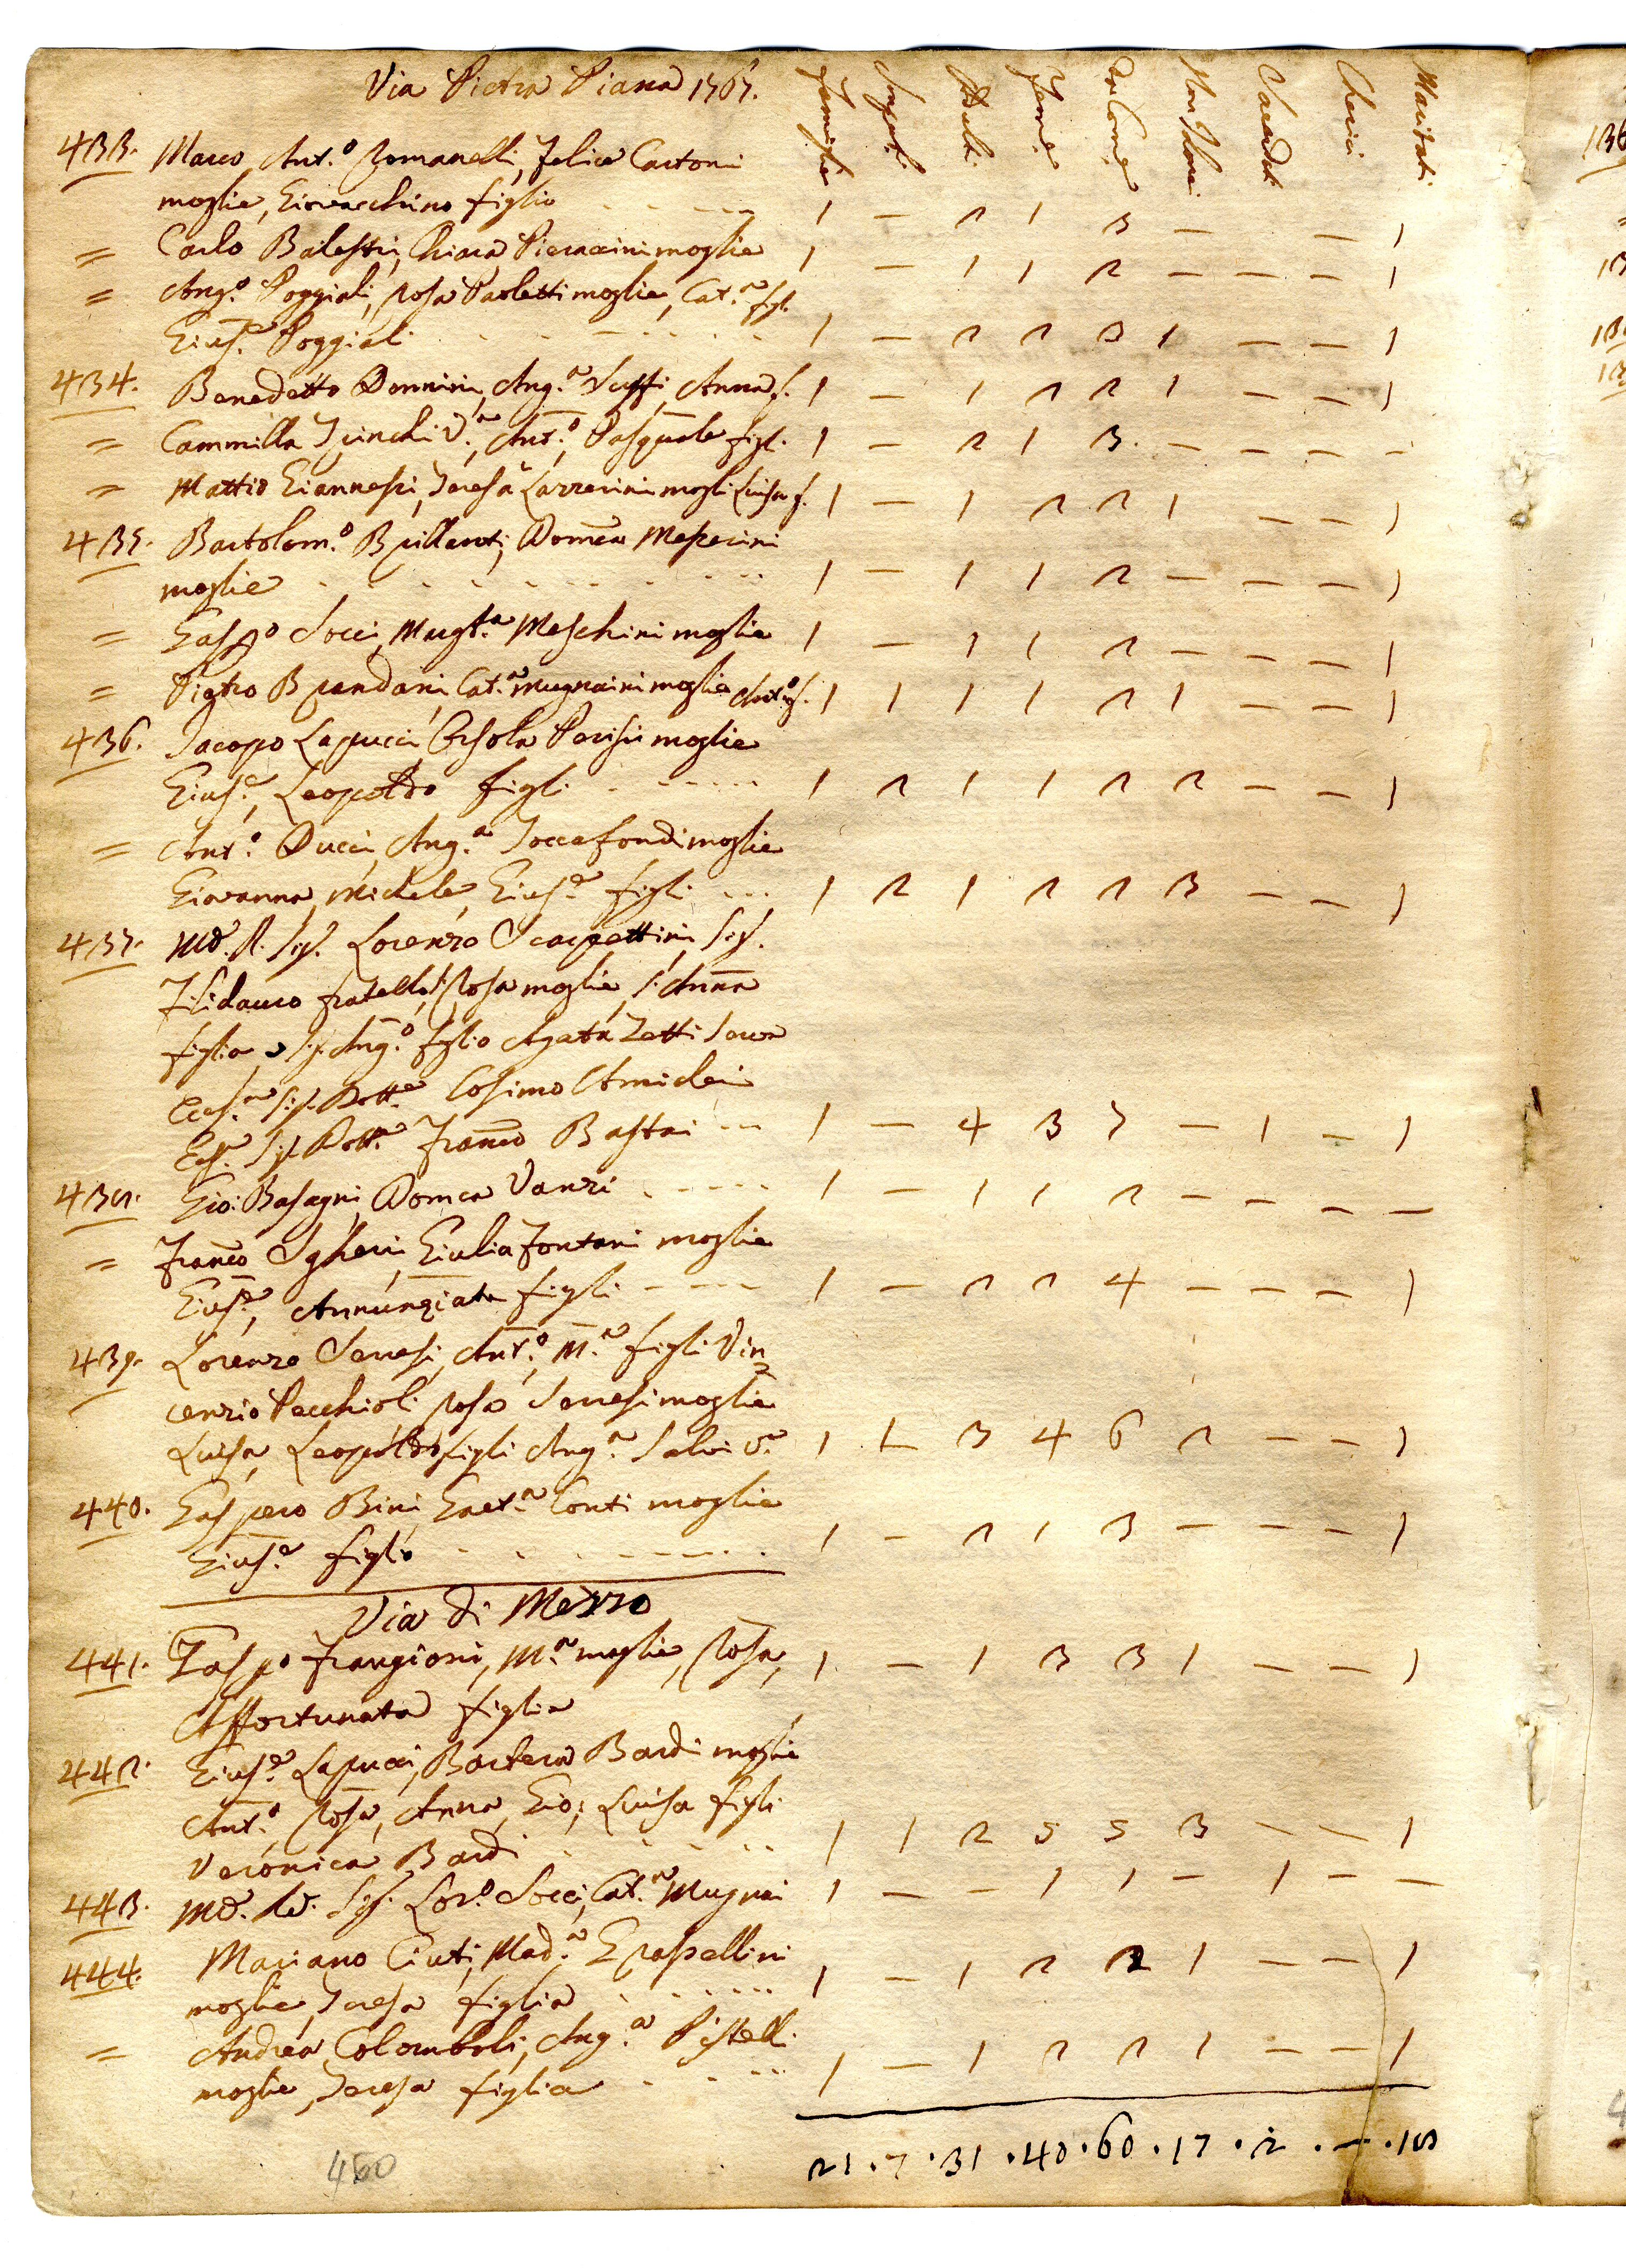 Via Pietra Piana 1767.
Famiglie Impuberi Adulti Femme Da Come Non Com Sacerdoti Cherici Maritati
433. Marco Ant.o Romanelli, Felice Cartoni
moglie, Giovacchino figlio - - - - - 1 — 2 1 3 — — 1
= Carlo Balestri, Chiara Pieraccini moglie 1 — 1 1 2 — — — 1
= Ang.o Poggiali, Rosa Paoletti moglie, Cat.a figl.
Gius.e Poggiali 1 — 2 2 3 1 — — 1
434. Benedetto Donnini, Ang.a Anna f. 1 — 1 2 2 1 — — 1
= Cammilla V.a, Ant.o, Pasquale figl. 1 — 2 1 3. — — — -
= Mattio Giannessi, Teresa Lazzerini mogli Luisa f. 1 — 1 2 2 1 — — 1
435. Bartolom.o Brillanti, Domca Messerini
moglie 1 — 1 1 2 — — — 1
= Gasp.o Socci, Margt.a Meschini moglie 1 — 1 1 2 — — — 1
= Pietro Brandani, Cat.a Mugnaini moglie Ant.o f. 1 1 1 1 2 1 — — 1
436. Jacopo Lapucci, Orsola Parisi moglie
Gius.e, Leopoldo figli 1 2 1 1 2 2 — — 1
= Ant.o Ducci, Ang.a Toccafondi moglie
Giovanna, Michele, Gius.e figli - - - 1 2 1 2 2 3 — — 1
437. Md. R. Sig. Lorenzo Scarpettini, Sig.
fratello, S. Rosa moglie, S. Anna
figlia, Sig. Ang.o figlio Agata Zatti Serva
Ecc.mo Sig. Dott.e Cosimo Amidei
Ecc. Sig. Dott.e Franco Bastai - - - 1 — 4 3 7 — 1 — 1
438. Gio: Basagni, Domca Vanzi - - - - - 1 — 1 1 2 — — — —
= Franco Sgheri, Giulia Fontani moglie
Gius.e, Annunziata figli - - - - 1 — 2 2 4 — — — 1
439. Lorenzo Serresi, Ant.o, M.a figli Vin=
cenzio Pecchioli Rosa Serresi moglie
Luisa, Leopoldo figli Ang.a Salvi V.a 1 1 3 4 6 2 — — 1
440. Gaspero Bini, Gaet.a Conti moglie
Gius.e figlio 1 — 2 1 3 — — — 1
Via di Mezzo
441. Gasp.o Frangioni, M.a moglie, Rosa, 1 — 1 3 3 1 — — 1
Affortunata figlia
442. Gius.e Lapucci, Barbera Bardi moglie
Ant.o Rosa, Anna, Gio: Luisa figli
Veronica Bardi 1 1 2 5 5 3 — — 1
443. Md. Rd. Sig. Lor.o Socci, Cat.a Mugnai 1 — — 1 1 — 1 — —
444. Mariano Ciuti, Mad.a Grassellini
moglie, Teresa figlia 1 — 1 2 2 1 — — 1
= Andrea Colomboli, Ang.a Pistell.
moglie, Teresa figlia 1 — 1 2 2 1 — — 1
21 . 7 . 31 . 40 . 60 . 17 . 2 . — . 18
460